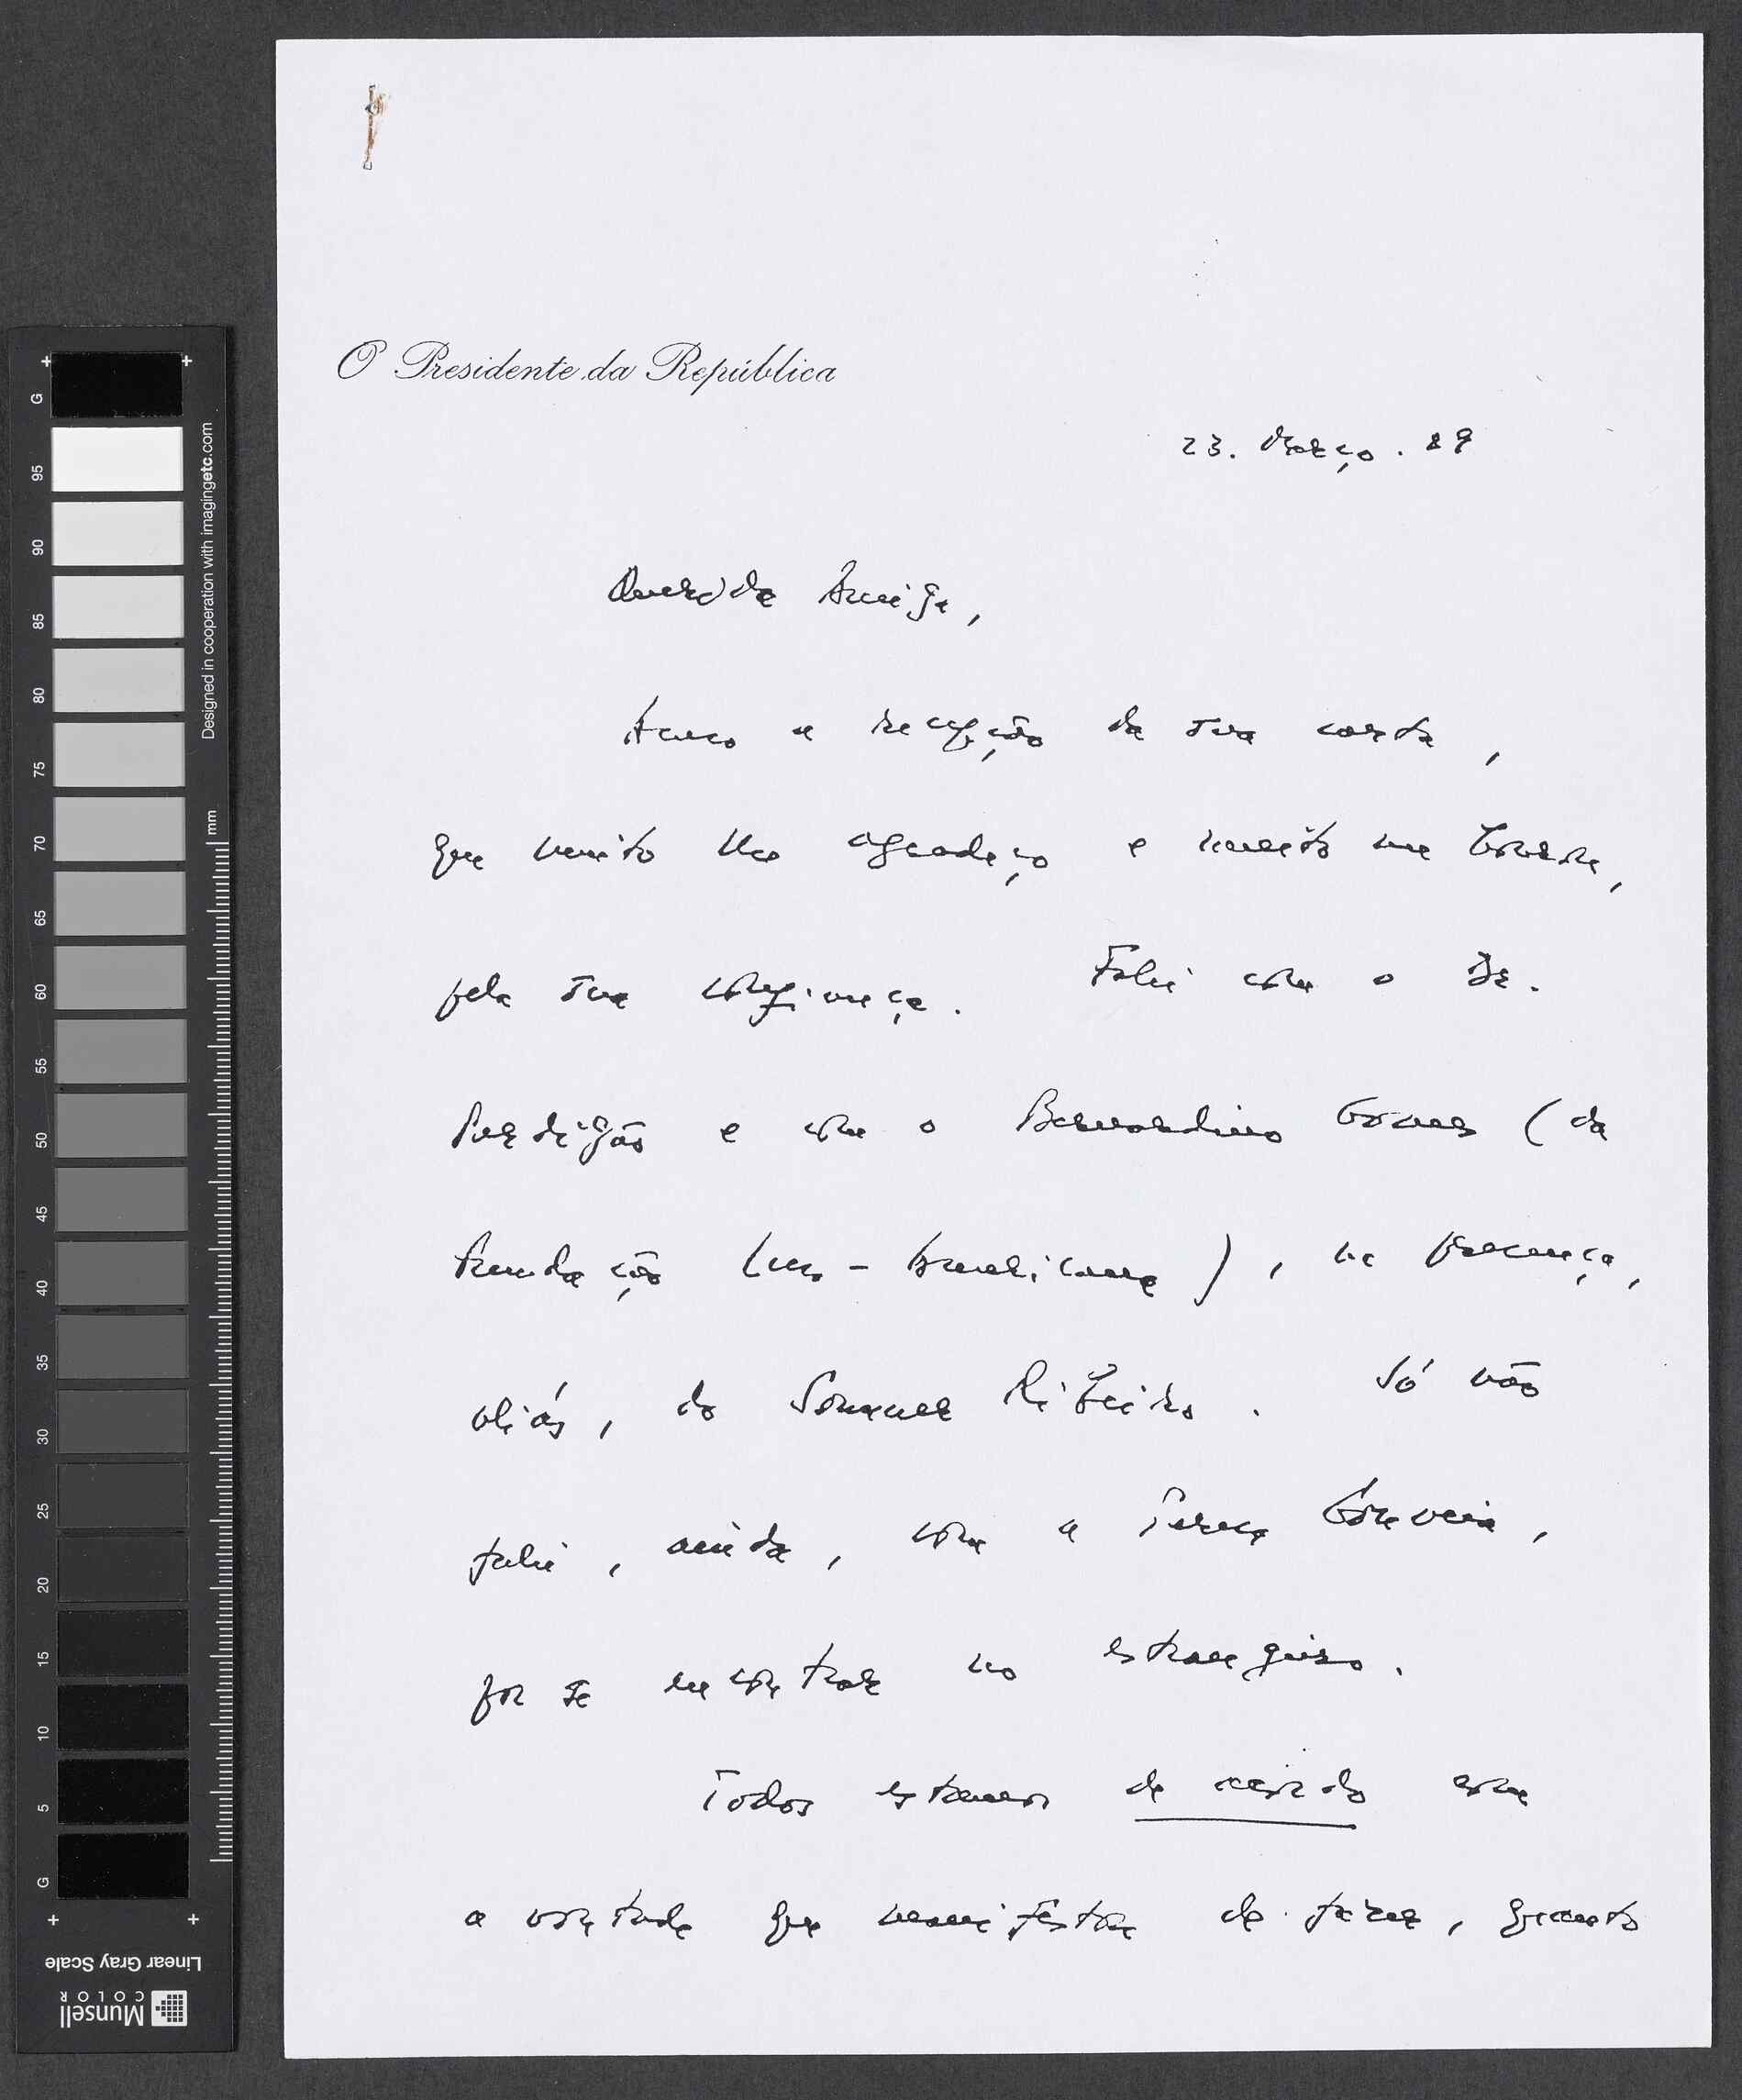 O Presidente da República
23. Março. 89
Querida Amiga,
Acuso a recepção da sua carta,
que muito lhe agradeço e muito me honra,
pela sua confiança. Falei com o Dr.
Perdigão e com o Bernardino Gomes (da
Fundação Luso-Americana), na presença,
aliás, do Sommer Ribeiro. Só não
falei, ainda, com a Teresa Gouveia,
por se encontrar no estrangeiro.
Todos estamos de acordo com
a vontade que manifestou de fazer, quanto
G
95
90
85
80
75
70
65
60
55
50
45
40
35
30
25
20
15
10
5
G
mm
Designed in cooperation with imagingetc.com
Linear Gray Scale
Munsell
COLOR